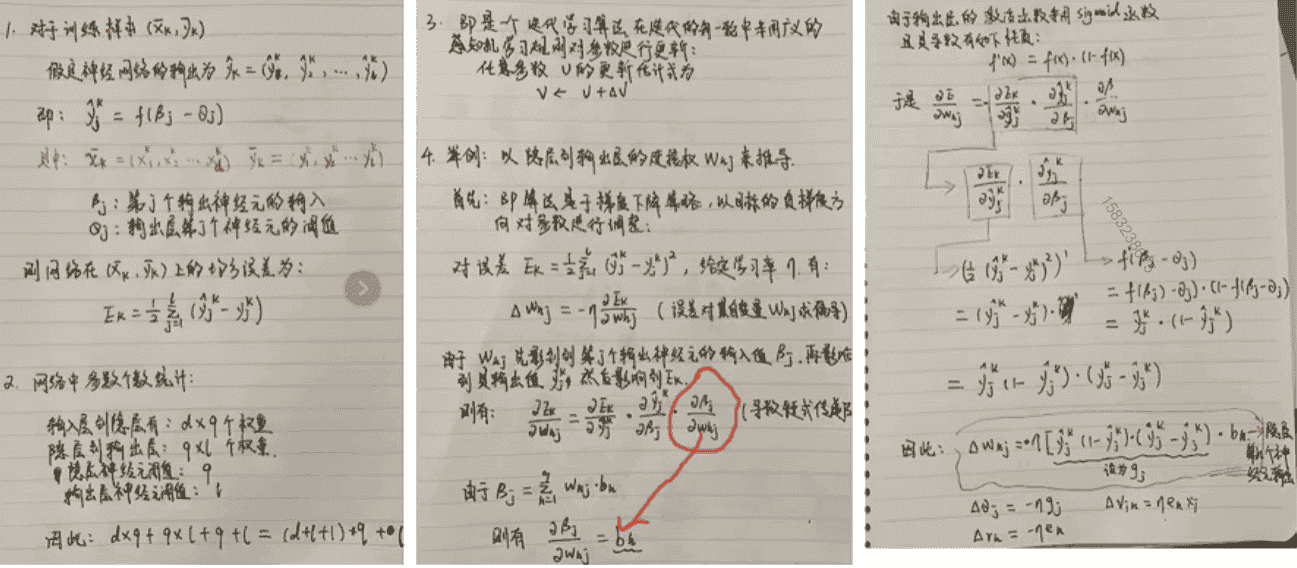 1. 对于训练样本 (x̄ₖ, ȳₖ)
假定神经网络的输出为 ŷₖ = (ŷ₁ᵏ, ŷ₂ᵏ, ⋯, ŷₗᵏ)
即: ŷⱼᵏ = f(βⱼ - θⱼ)
其中: x̄ₖ = (x₁ᵏ, x₂ᵏ ⋯ x_dᵏ) ȳₖ = (y₁ᵏ, y₂ᵏ ⋯ yₗᵏ)
βⱼ: 第j个输出神经元的输入
θⱼ: 输出层第j个神经元的阈值
则网络在 (x̄ₖ, ȳₖ) 上的均方误差为:
Eₖ = 1/2 Σⱼ₌₁ˡ (ŷⱼᵏ - yⱼᵏ)
2. 网络中参数个数统计:
输入层到隐层有: d×q 个权重
隐层到输出层: q×l 个权重.
隐层神经元阈值: q
输出层神经元阈值: l
因此: d×q + q×l + q + l = (d+l+1)*q +
3. 即是一个迭代学习算法在迭代的每一轮中采用广义的
感知机学习规则对参数进行更新:
任意参数 υ 的更新估计式为
υ ← υ + Δυ
4. 举例: 以隐层到输出层的连接权 Wₕⱼ 来推导.
首先: 即算法基于梯度下降策略, 以目标的负梯度方
向对参数进行调整:
对误差 Eₖ = 1/2 Σⱼ₌₁ˡ (ŷⱼᵏ - yⱼᵏ)², 给定学习率 η. 有:
ΔWₕⱼ = -η ∂Eₖ/∂Wₕⱼ (误差对其自变量Wₕⱼ求偏导)
由于 Wₕⱼ 先影响到第j个输出神经元的输入值 βⱼ. 再影响
到其输出值 ŷⱼᵏ, 然后影响到Eₖ.
则有: ∂Eₖ/∂Wₕⱼ = ∂Eₖ/∂ŷⱼᵏ · ∂ŷⱼᵏ/∂βⱼ · ∂βⱼ/∂Wₕⱼ (导数链式传递
由于 βⱼ = Σₕ₌₁^q Wₕⱼ·bₕ
则有 ∂βⱼ/∂Wₕⱼ = bₕ
由于输出层的激活函数采用 sigmoid 函数
且导数有如下性质:
f'(x) = f(x)·(1-f(x))
于是 ∂E/∂Wₕⱼ = -∂Eₖ/∂ŷⱼᵏ · ∂ŷⱼᵏ/∂βⱼ · ∂β/∂Wₕⱼ
∂Eₖ/∂ŷⱼᵏ · ∂ŷⱼᵏ/∂βⱼ
15832380
(1/2 (ŷⱼᵏ - yⱼᵏ)²)' f'(βⱼ - θⱼ)
= (ŷⱼᵏ - yⱼᵏ)· = f(βⱼ) - θⱼ)·(1-f(βⱼ-θⱼ)
= ŷⱼᵏ·(1-ŷⱼᵏ)
= ŷⱼᵏ (1-ŷⱼᵏ)·(yⱼᵏ-ŷⱼᵏ)
因此: ΔWₕⱼ = η[ŷⱼᵏ (1-ŷⱼᵏ)·(ŷⱼᵏ-ŷⱼᵏ)·bₕ 隐层
设为gⱼ 第h个神
经元输出
Δθⱼ = -ηgⱼ Δvᵢₕ = ηeₕxᵢ
Δrₕ = -ηeₕ